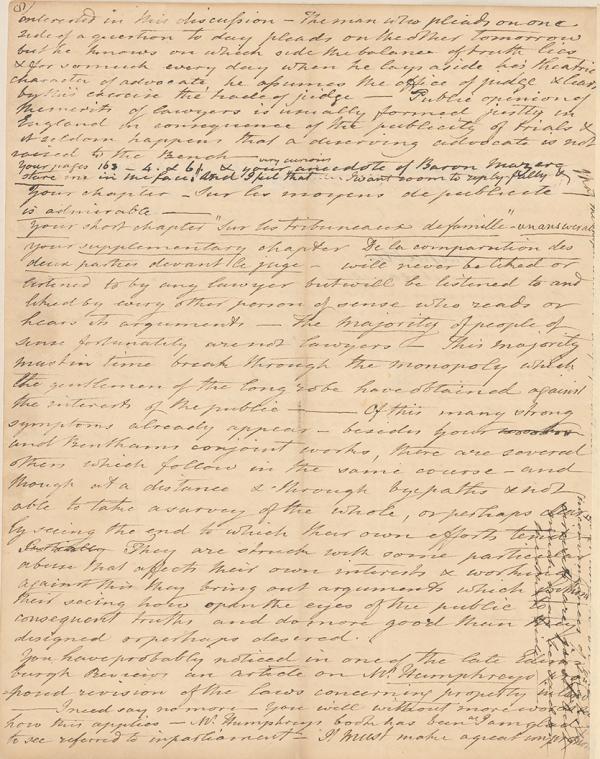 interested in this discussion – The man who pleads on one
side of a question to day pleads on the other tomorrow
but he knows on which side the balance of truth lies
& for so much every day when he lays aside his theatric
character of advocate he assumes the office of judge &
by this exercise the trade of judge Public opinion of
the merits of lawyers is usually formed justly in
England in consequence of the publicity of trials &
it seldom happens that a deserving advocate is not
raised to the Bench
very curious
Your pages 163 – 4. & 6! & your anecdote of Baron
stare me in the face! and I felt that I want room to reply fully
Your chapter – Sur les moyens de publicité
is admirable –
Your short chapter "Sur les tribuneaux de famille" – unanswerable
your supplementary chapter De la comparution des
deux parties devant le juge – will never be liked or
listened to by any lawyer but will be listened to and
liked by every other person of sense who reads or
hears its arguments – The majority of people of
sense fortunately are not lawyers – This majority
must in time break through the monopoly which
the gentlemen of the long robe have obtained against
the interests of the public – Of this many strong
symptoms already appear – besides your
and Benthams conjoint works, there are several
others which follow in the same course – and
though at a distance & through byepaths & not
able to take a survey of the whole, or perhaps
ly seeing the end to which their own efforts tend
They are struck with some particular
abuse that affects their own interests & working
against this they bring out arguments which
their seeing how open the eyes of the public to
consequent truths and do more good than
designed or perhaps desired.
You have probably noticed in one of the late Edin
burgh Reviews an article on Mr Humphreys
posed revision of the laws concerning property in land
– I need say no more – You will without more words
how this applies – Mr Humphreys book has been I am glad
to see referred to in parliament – It must make a great